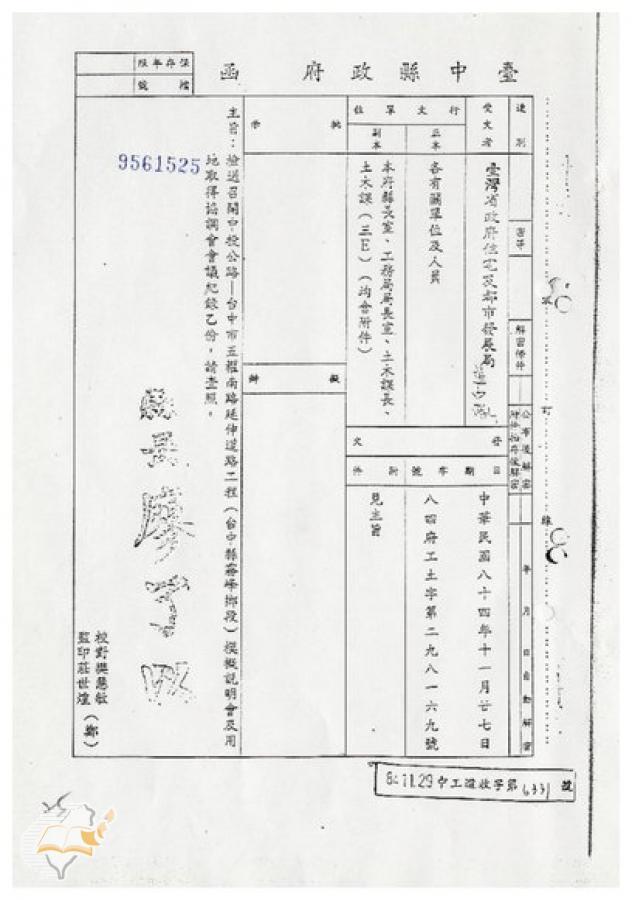 臺中縣政府 函
保存年限
檔號
速別
密等
解密條件
公布後解密
附件抽存後解密
年 月 日自動解密
受文者
臺灣省政府住宅及都市發展局
行文單位
正本
各有關單位及人員
副本
本府縣長室、工務局局長室、土木課長、
土木課(三E)(均含附件)
發文
日期
中華民國八十四年十一月廿七日
字號
八四府工土字第二九八一六九號
附件
見主旨
批示
擬辦
主旨:檢送召開中投公路—台中市五權南路延伸道路工程(台中縣霧峰鄉段)樁概說明會及用
地取得協調會會議紀錄乙份,請查照。
9561525
縣長廖了以
校對樊慧敏
監印莊世煌(鄭)
84.11.29中工證收字第6331號
裝
訂
線